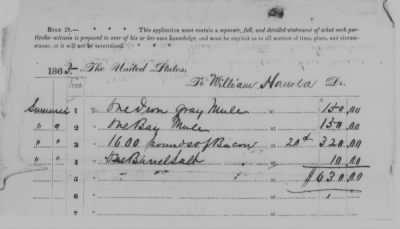 RULE 28.— ☞ This application must contain a separate, full, and detailed statement of what each par-
ticular witness is prepared to aver of his or her own knowledge, and must be explicit as to all matters of time, place, and circum-
stance, or it will not be entertained.
186 The United States,
To William Dr.
Summer 1 To One Iron Gray Mule at 150.00
" " 2 " One Bay Mule at 150.00
" " 3 " 1600 pounds of Bacon at 20¢ 320.00
" " 4 " One Barrel Salt at 10.00
5 " $630.00
6
7